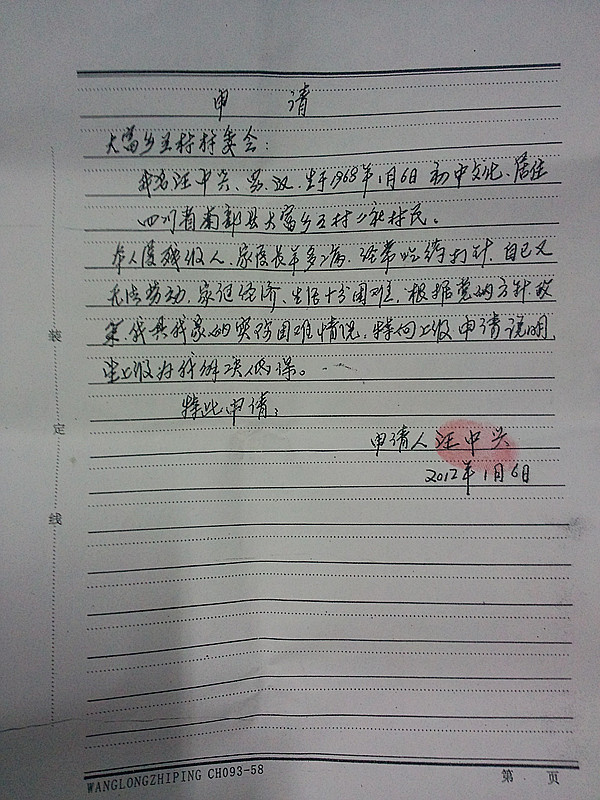 申 请
大富乡王村村委会：
我名汪中兴、男、汉、生于1968年1月6日 初中文化、居住
四川省南部县大富乡王村二社村民。
本人属残级人、家庭长年多病、经常吃药打针、自己又
无法劳动、家庭经济、生活十分困难、根据党的方针政
策、我具我家的实际困难情况、特向上级申请说明、
望上级为我解决低保。
特此申请；
申请人 汪中兴
2012年1月6日
装
定
线
WANGLONGZHIPING CH093-58
第 页